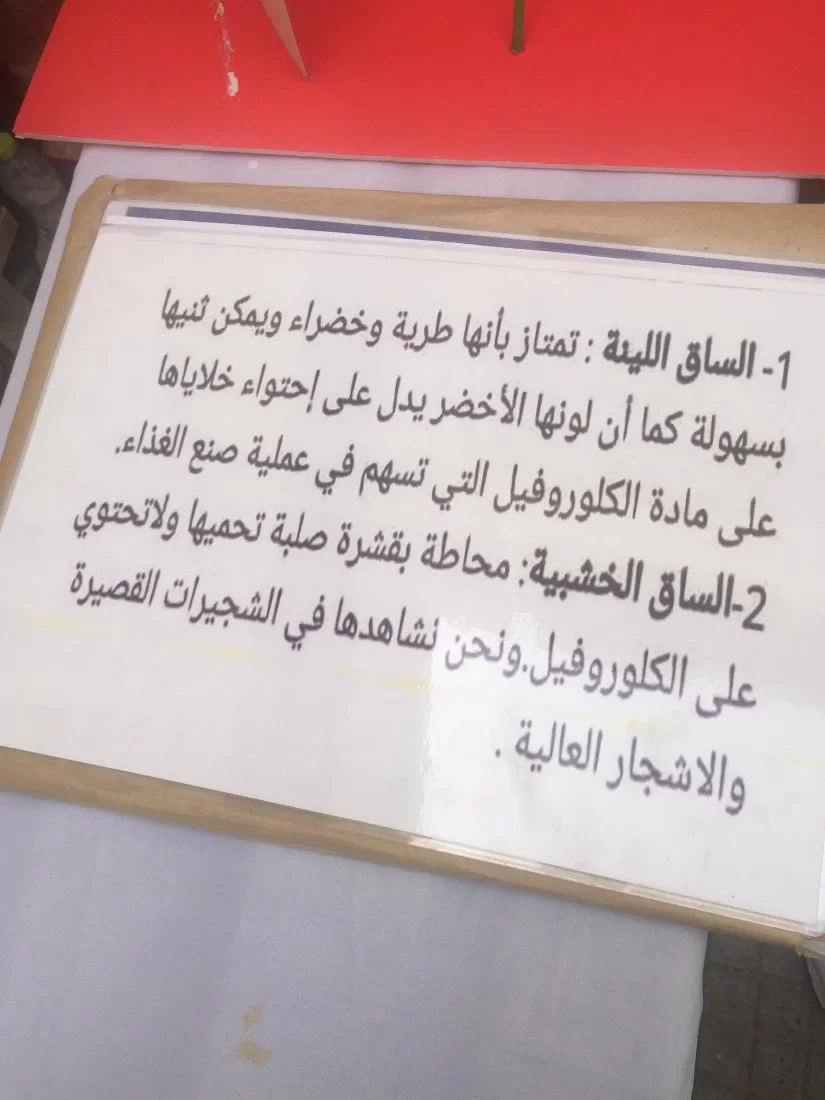 1- الساق اللينة : تمتاز بأنها طرية وخضراء ويمكن ثنيها
بسهولة كما أن لونها الأخضر يدل على إحتواء خلاياها
على مادة الكلوروفيل التي تسهم في عملية صنع الغذاء.
2-الساق الخشبية: محاطة بقشرة صلبة تحميها ولاتحتوي
على الكلوروفيل.ونحن نشاهدها في الشجيرات القصيرة
والاشجار العالية .